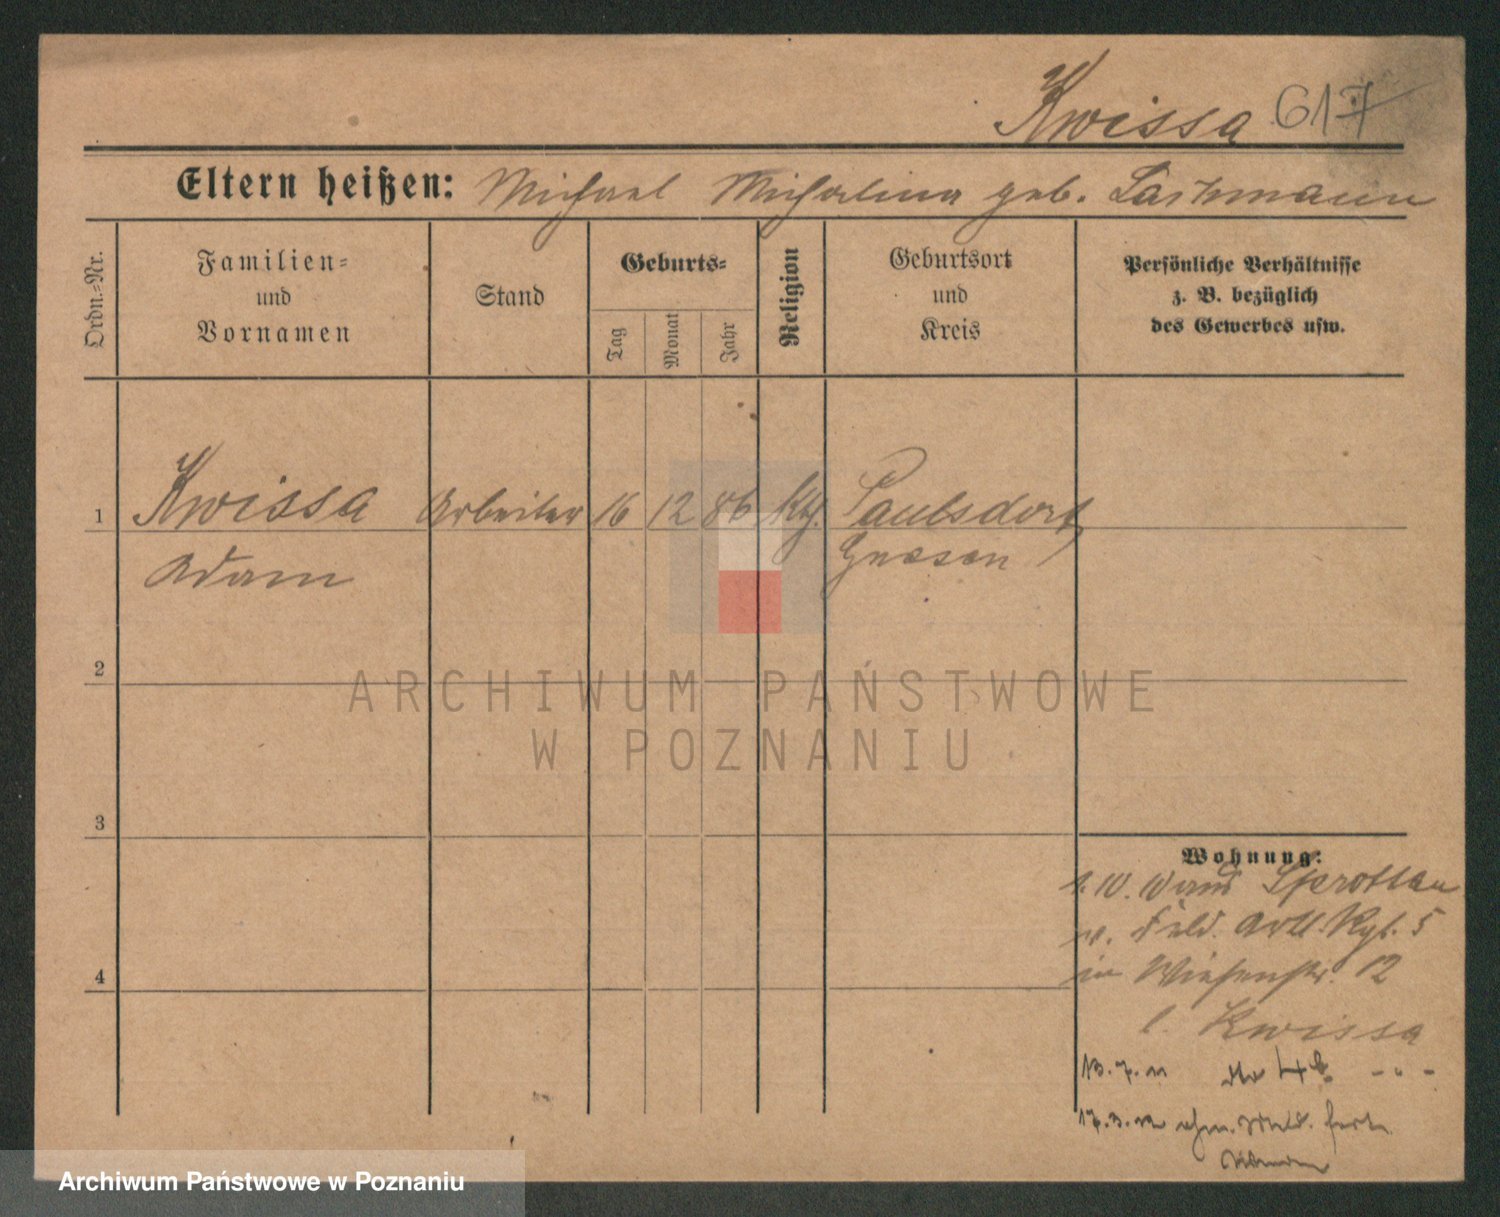 Kwissa 617
Eltern heißen: Michael Michalina geb. Lachmann
Ordn.-Nr.
Familien-
und
Vornamen
Stand
Geburts-
Tag
Monat
Jahr
Religion
Geburtsort
und
Kreis
Persönliche Verhältnisse
z. B. bezüglich
des Gewerbes usw.
1 Kwissa Arbeiter 16 12 86 kth. Paulsdorf
Adam Gnesen
2
ARCHIWUM PAŃSTWOWE
W POZNANIU
3
4
Wohnung:
1. 10. 10 aus Sprottau
v. Feld. Artl. Rgt. 5
in Wiesenstr. 12
b. Kwissa
13. 7. 11
17. 3. 12
Archiwum Państwowe w Poznaniu